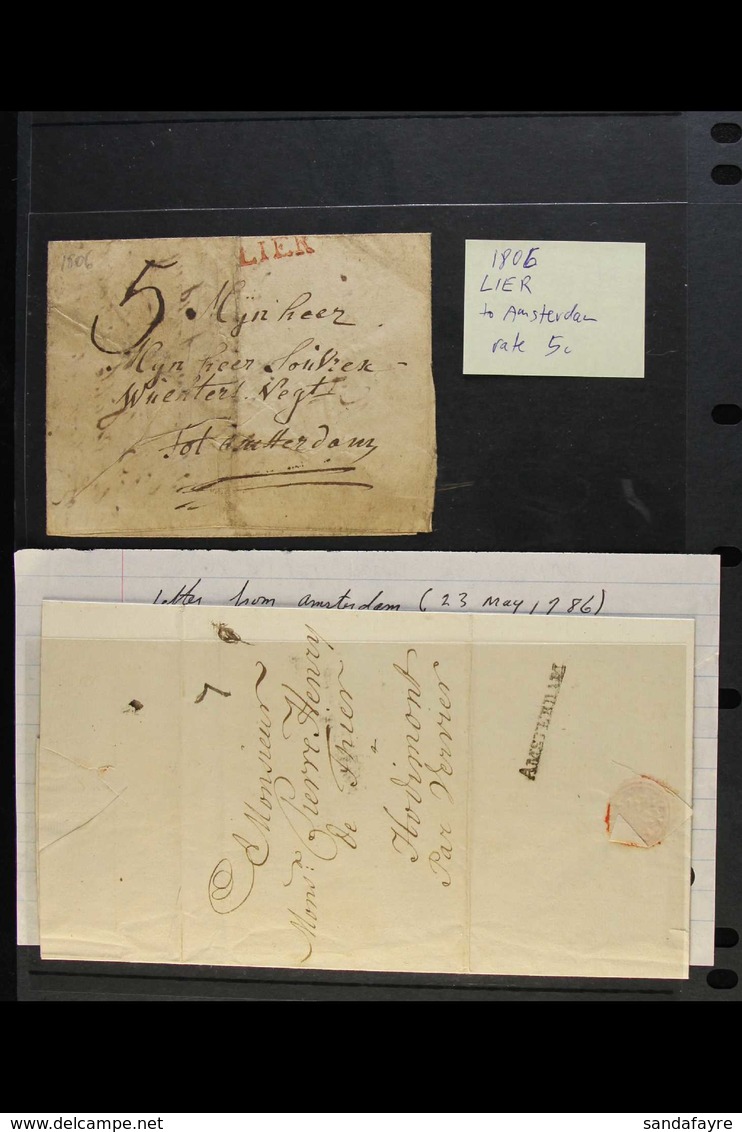 1806
LIER
5
Mÿn heer
Mÿn heer
Tot amsterdam
1806
LIER
to Amsterdam
rate 5c
letter from amsterdam (23 May 1786)
7
Monsieur
Mons: Pierre Henry
de Thier
a
Hodimont
Par Vervier
AMSTERDAM
delcampe.net
sandafayre